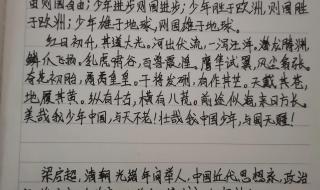 由则国自由；少年进步则国进步；少年胜于欧洲，则国胜
于欧洲；少年雄于地球，则国雄于地球。
红日初升，其道大光。河出伏流，一泻汪洋。潜龙腾渊，
鳞爪飞扬。乳虎啸谷，百兽震惶。鹰隼试翼，风尘翕张。
奇花初胎，矞矞皇皇。干将发硎，有作其芒。天戴其苍，
地履其黄。纵有千古，横有八荒。前途似海，来日方长。
美哉我少年中国，与天不老！壮哉我中国少年，与国无疆！
梁启超，清朝光绪年间举人，中国近代思想家，政治